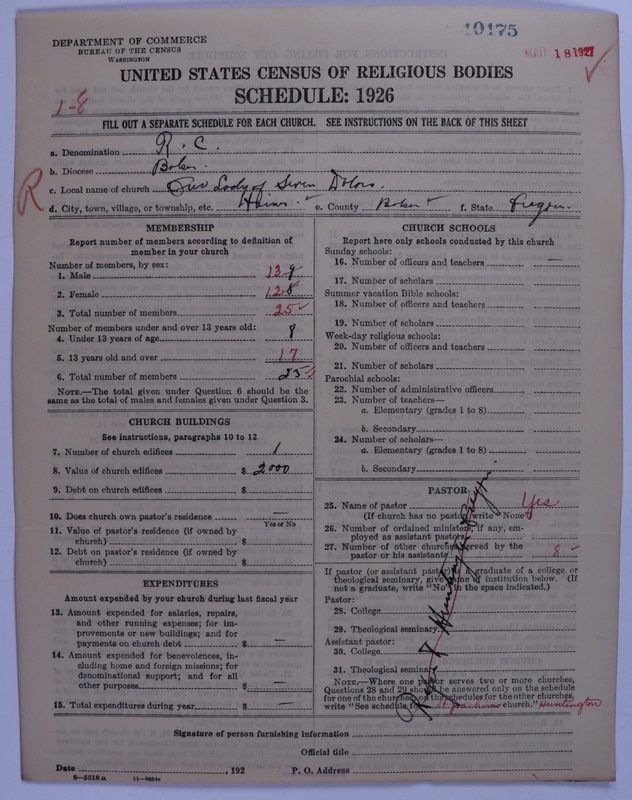 19175
DEPARTMENT OF COMMERCE
BUREAU OF THE CENSUS
WASHINGTON
18 1927
UNITED STATES CENSUS OF RELIGIOUS BODIES
SCHEDULE: 1926
1-8
FILL OUT A SEPARATE SCHEDULE FOR EACH CHURCH. SEE INSTRUCTIONS ON THE BACK OF THIS SHEET
a. Denomination R. C.
b. Diocese Baker.
c. Local name of church Our Lady of Seven Dolors.
R
d. City, town, village, or township, etc. Haines e. County Baker f. State Oregon.
MEMBERSHIP
Report number of members according to definition of
member in your church
Number of members, by sex:
1. Male 13
2. Female 12
3. Total number of members 25
Number of members under and over 13 years old:
4. Under 13 years of age 8
5. 13 years old and over 17
6. Total number of members 25
NOTE.—The total given under Question 6 should be the
same as the total of males and females given under Question 3.
CHURCH BUILDINGS
See instructions, paragraphs 10 to 12
7. Number of church edifices 1
8. Value of church edifices $ 2000
9. Debt on church edifices $
10. Does church own pastor's residence —
Yes or No
11. Value of pastor's residence (if owned by
church) $
12. Debt on pastor's residence (if owned by
church) $
EXPENDITURES
Amount expended by your church during last fiscal year
13. Amount expended for salaries, repairs,
and other running expenses; for im-
provements or new buildings; and for
payments on church debt $ —
14. Amount expended for benevolences, in-
cluding home and foreign missions; for
denominational support; and for all
other purposes $ —
15. Total expenditures during year $ —
CHURCH SCHOOLS
Report here only schools conducted by this church
Sunday schools:
16. Number of officers and teachers —
17. Number of scholars
Summer vacation Bible schools:
18. Number of officers and teachers
19. Number of scholars
Week-day religious schools:
20. Number of officers and teachers
21. Number of scholars
Parochial schools:
22. Number of administrative officers
23. Number of teachers—
a. Elementary (grades 1 to 8)
b. Secondary
24. Number of scholars—
a. Elementary (grades 1 to 8)
b. Secondary
PASTOR
25. Name of pastor Yes
(If church has no pastor, write "None")
26. Number of ordained ministers, if any, em-
ployed as assistant pastors
27. Number of other churches served by the
pastor or his assistants 8 —
If pastor (or assistant pastor) is a graduate of a college or
theological seminary, give name of institution below. (If
not a graduate, write "No" in the space indicated.)
Pastor:
28. College
29. Theological seminary
Assistant pastor:
30. College
31. Theological seminary
NOTE.—Where one pastor serves two or more churches,
Questions 28 and 29 should be answered only on the schedule
for one of the churches; on the schedules for the other churches,
write "See schedule for St Joachims church." Huntington
Huntington Oregon
Signature of person furnishing information
Official title
Date , 192 P. O. Address
8—5318a 11—9664a